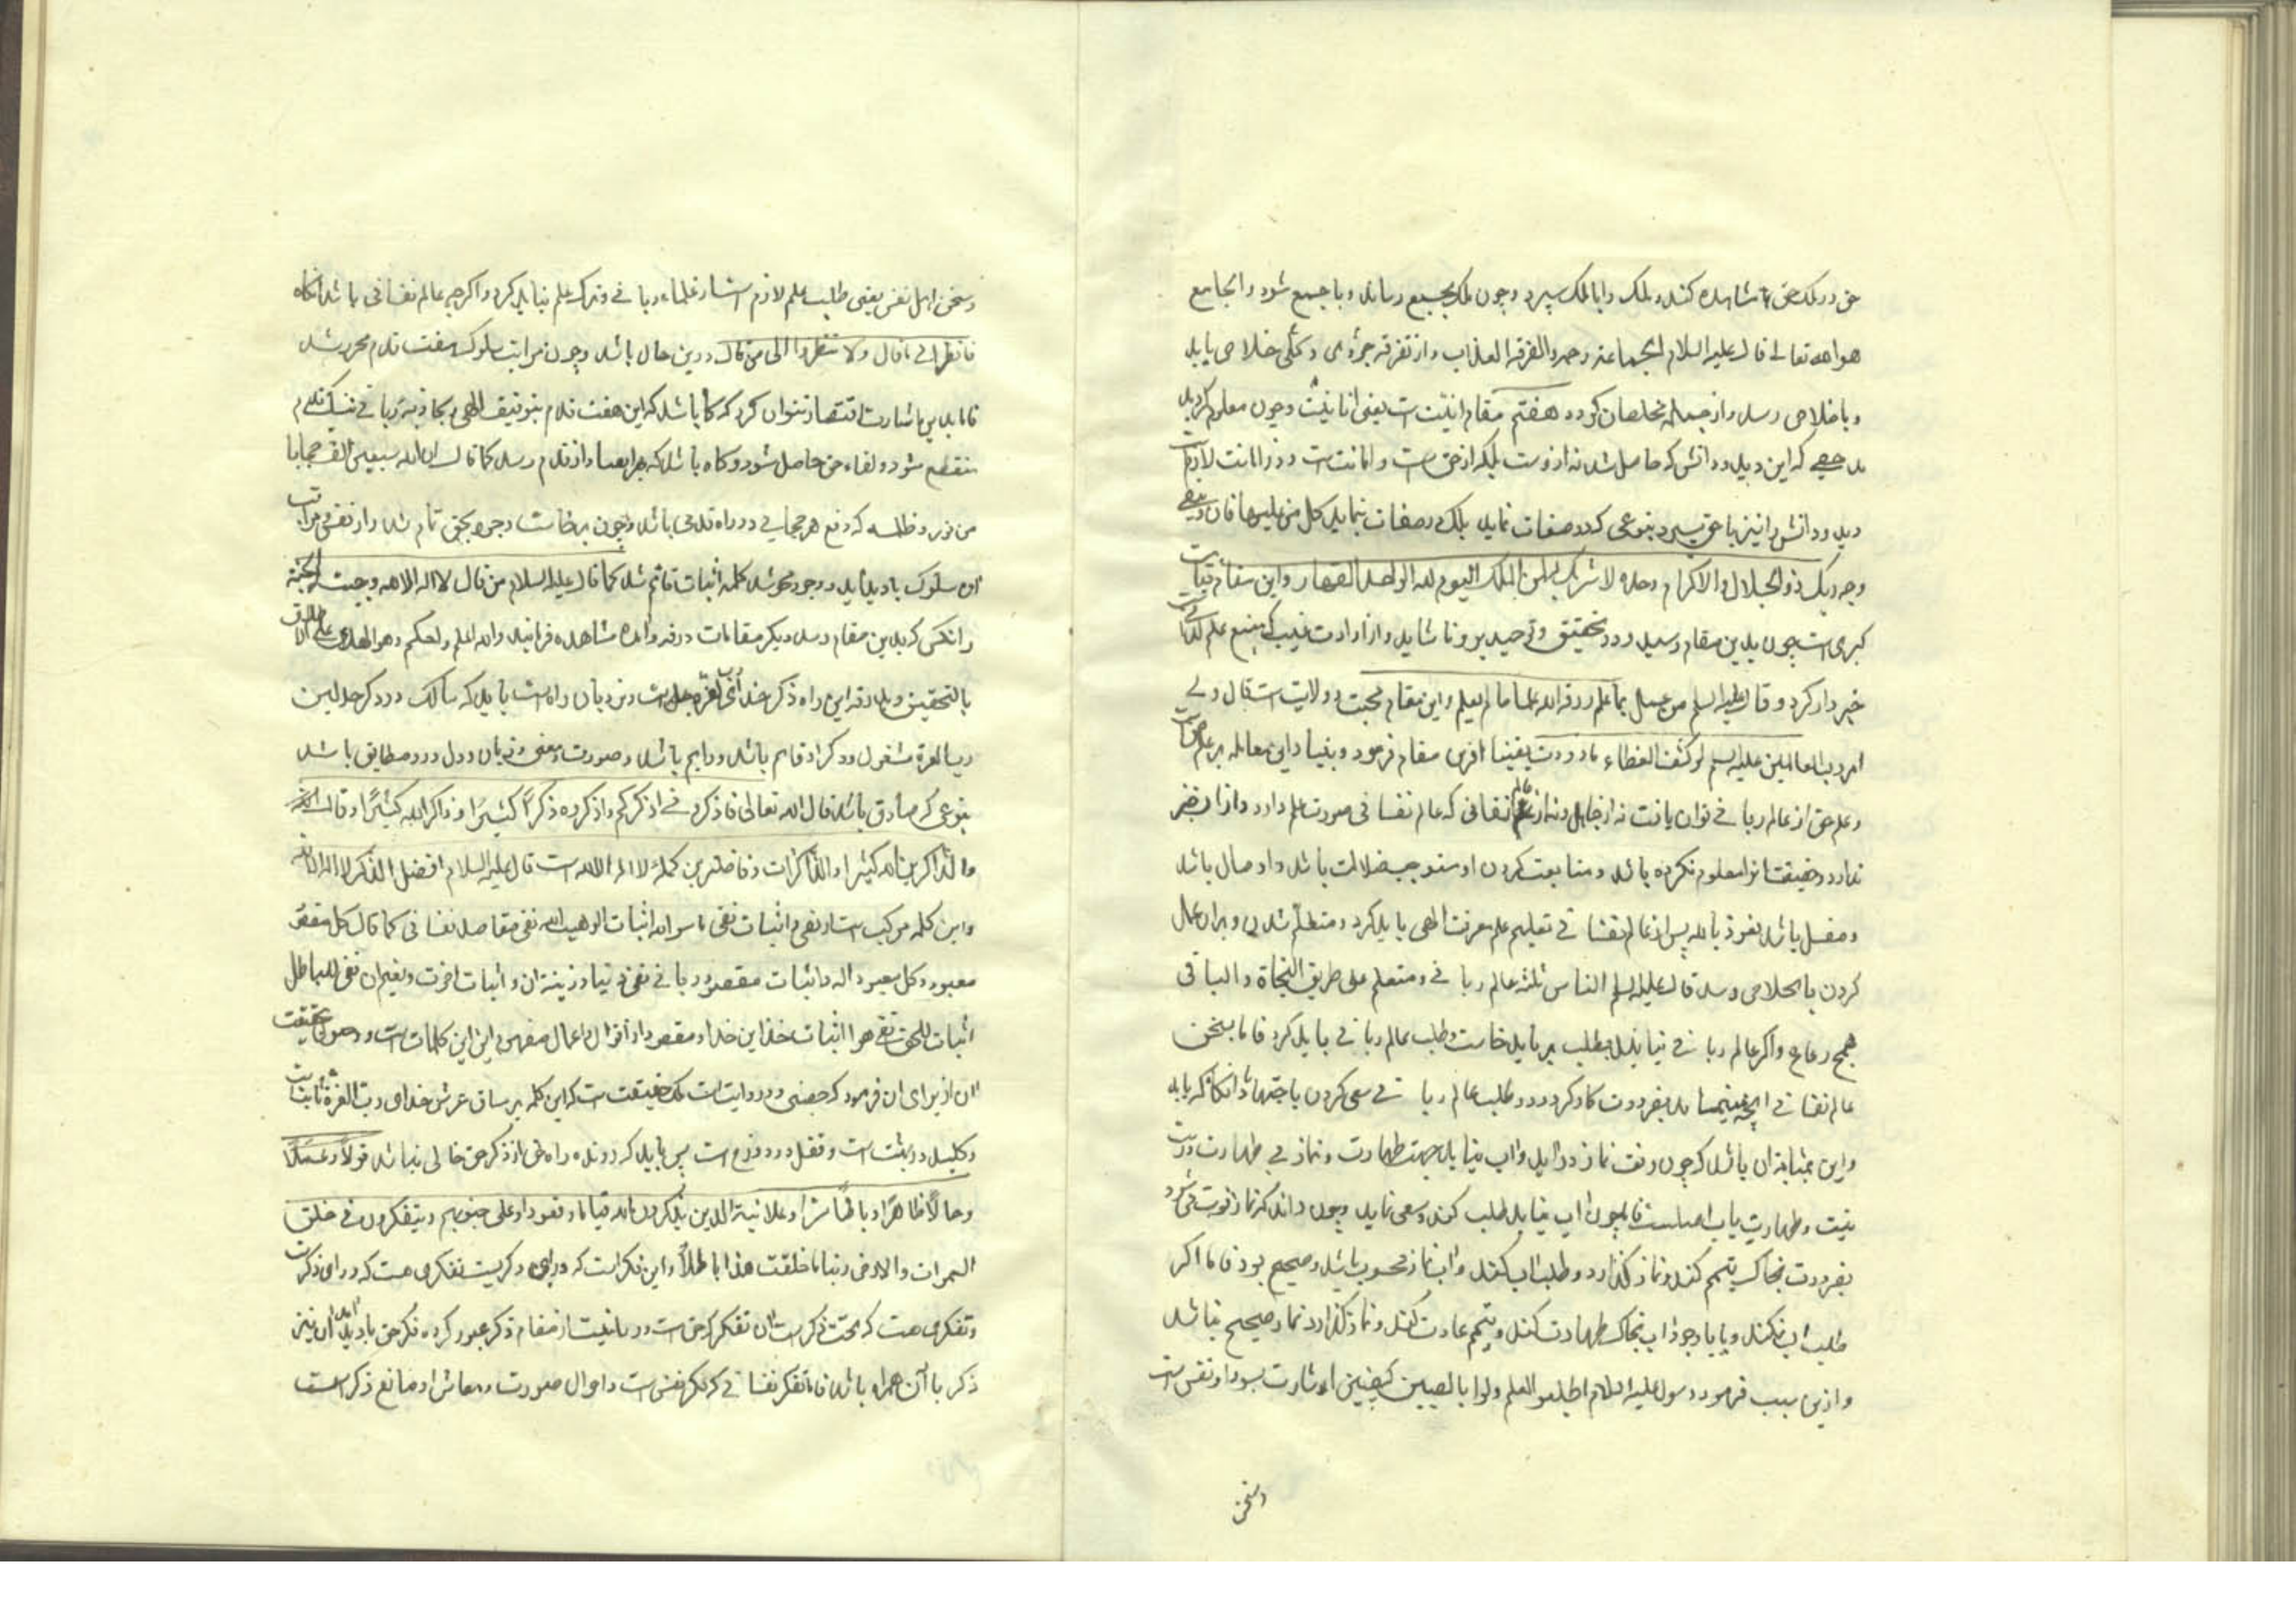 حق در ملک حق مشاهده کند و ملک را با ملک سپرد و چون ملک بجمیع رساند و با جمیع شود و الجامع
هو الله تعالی قال علیه السلام الجماعة رحمة و الفرقة العذاب و از تفرقه جزوی و کلی خلاصی یابد
و با خلاصی رسد و از جمله مخلصان گردد هفتم مقام انیّت است یعنی انانیّت و چون معلوم کردید
که این دید و دانش که حاصل شد نه از وست بلکه از حق است و امانت است و رد امانت لازم است
دید و دانش را نیز با حق سپرد بنوعی که در صفات نماید بلک در صفات بنماید کل من علیها فان و یبقی
وجه ربک ذو الجلال و الاکرام وحده لا شریک له لمن الملک الیوم لله الواحد القهار و این مقام قیامت
کبری است چون بدین مقام رسید در تحقیق و توحید برو ناشاید و از ارادت غیب که منبع علم لدنی است
خبردار کرد و قال علیه السلم من عمل بما علم رزقه الله علم ما لم یعلم و این مقام محبت و ولایت است قال ولی
امر رب العالمین علیه السلم لو کشف الغطاء ما زددت یقینا ازین مقام فرمود و بنیاد این معامله بر علم حق است
و علم حق از عالم ربانی توان یافت نه از جاهل و نه از عالم نفسانی که عالم نفسانی صورت علم دارد و از ان خبر
ندارد و حقیقت انرا معلوم نکرده باشد و متابعت کردن او مستوجب ضلالت باشد و او ضال باشد
و مضل باشد نعوذ بالله پس از عالم نفسانی تعلیم علم معرفت الهی باید کرد و متعلم شدن و بران عمال
کردن با خلاصی رسد قال علیه السلم الناس ثلثة عالم ربانی و متعلم علی طریق النجاة و الباقی
همج رعاع و اگر عالم ربانی نیابد بطلب بر باید خاست و طلب عالم ربانی باید کرد فاما بسخن
عالم نفسانی بضرورت کار کردد و در طلب عالم ربانی سعی کردن باجتهاد تا انگاه که یابد
و این بمثابه ان باشد که چون وقت نماز درآید و آب نیابد جهت طهارت و نماز بی طهارت درست
نیست و طهارت باب اصلست فاما چون اب نیابد طلب کند و سعی نماید و چون داند که نماز فوت می شود
بضرورت بخاک تیمم کند و نماز گذارد و طلب اب کند و ان نماز محسوب باشد و صحیح بود فاما اگر
طلب اب نکند و یا با وجود اب بخاک طهارت کند و تیمم عادت کند و نماز گذارد نماز صحیح نباشد
و ازین سبب فرمود رسول علیه السلام اطلبوا العلم ولو بالصین
و سخن
و سخن اهل نفس یعنی طلب علم لازم است از علماء ربانی و ترک علم نباید کرد و اگر چه عالم نفسانی باشد انگاه
فانظر الی ما قال ولا تنظروا الی من قال درین حال باشد و چون مراتب سلوک هفت قدم محرر شد
فاما بدین اشارت اقتصار نتوان کرد که گاه باشد که این هفت قدم بتوفیق الهی بجاذبه ربانی بیک قدم
منقطع شود و لقاء حق حاصل شود و گاه باشد که بهر هفتاد هزار قدم رسد کما قال ان لله سبعین الف حجابا
من نور و ظلمة که رفع هر حجابی در راه قدمی باشد و چون برخاست وجود بحق تمام شد و از نفس مراتب
ان سلوک بادید آید وجود محو شد کلمه اثبات قائم شد کما قال علیه السلام من قال لا اله الا الله وجبت له الجنة
و انکس که بدین مقام رسد دیگر مقامات درو و انده مشاهده فرمانید و الله اعلم و احکم و هو الهادی علی الاطلاق
بالتحقیق و بدرقه این راه ذکر خدای رب العزة جل است و نردبان راه است باید که سالک در ذکر جد لیت
رب العزة مشغول و ذکر او قایم باشد و دایم باشد و صورت و معنی و زبان و دل درو مطابق باشد
بنوعی که صادق باشد قال الله تعالی فاذکرونی اذکرکم و اذکروه ذکرا کثیرا و ذاکر الله کثیرا و قال
والذاکرین الله کثیرا و الذاکرات و فاضلترین کلمه لا اله الا الله است قال علیه السلام افضل الذکر لا اله الا الله
و این کلمه مرکب است از نفی و اثبات نفی ما سوا الله اثبات الوهیت الله نفی مقاصد نفسانی کما قال کل مقصود
معبود و کل معبود اله و اثبات مقصود ربانی نفی دنیا و زینت ان و اثبات اخرت و نعیم ان نفی الباطل
اثبات للحق نفی هوا اثبات خدا این خدا و مقصود از اقوال و اعمال مفهوم این کلمات است
ان ازبرای ان فرمود که حصنی و در روایت است که حقیقت است که این کلمه بر ساق عرش خدای رب العزة ثابت است
و کلید در بهشت است و قفل در دوزخ است پس باید که رونده راه حق از ذکر حق خالی نباشد قولا و عملا
و حالا ظاهرا و باطنا سرا و علانیة الذین یذکرون الله قیاما و قعودا و علی جنوبهم و یتفکرون فی خلق
السموات و الارض ربنا ما خلقت هذا باطلا و این فکر است که ورای ذکریست تفکری هست که ورای ذکرست
و تفکری هست که تحت ذکر است ان تفکر که حق است و ربانیت از مقام ذکر عبور کرده فکر حق بادید آید ان نیز
ذکر با آن همراه باشد فاما تفکر نفسانی که فکر نفس است و احوال صورت و معاش او مانع ذکر است